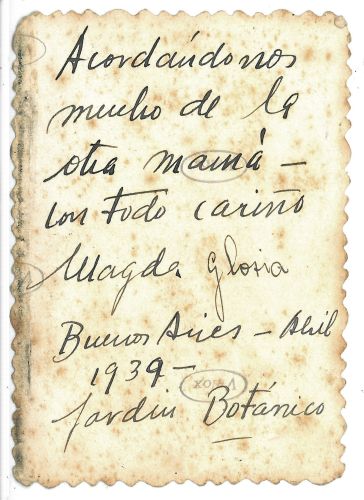 Acordándonos
mucho de la
otra mamá —
con todo cariño
Magda Gloria
Buenos Aires — Abril
1939 —
Jardin Botánico
VELOX